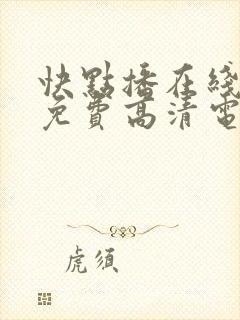 快點播在綫
免費高清電
虎須